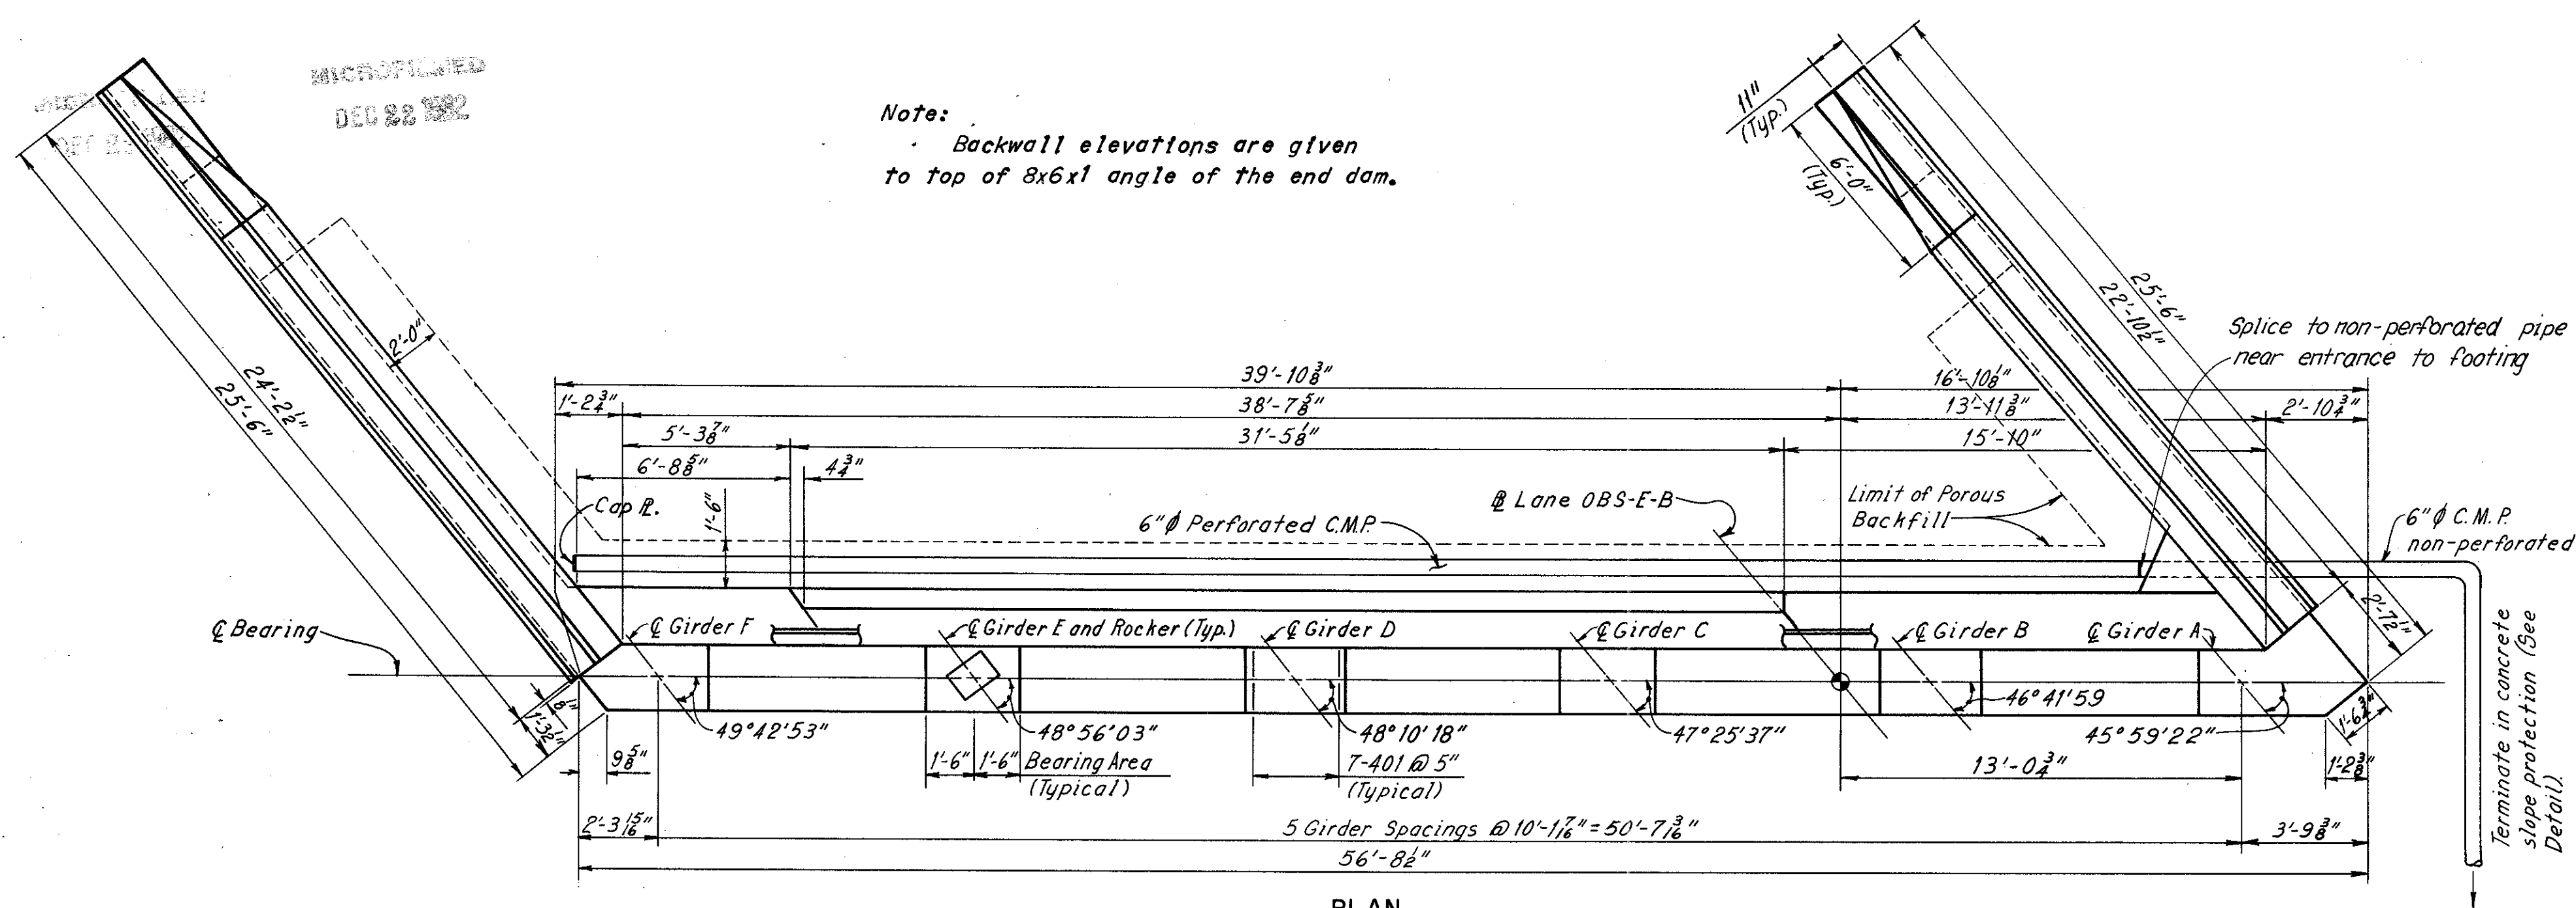 MICROFILMED
DEC 22
Note:
Backwall elevations are given
to top of 8x6x1 angle of the end dam.
11"
(Typ.)
6'-0"
(Typ.)
25'-6"
22'-10½"
2'-0"
24'-2½"
25'-6"
Splice to non-perforated pipe
near entrance to footing
39'-10⅜"
16'-10⅛"
1'-2¾"
38'-7⅝"
13'-11⅜"
2'-10¾"
5'-3⅞"
31'-5⅛"
15'-10"
6'-8⅝"
4¾"
Cap ℙL.
1'-6"
6"ϕ Perforated C.M.P.
Lane OBS-E-B
Limit of Porous
Backfill
6"ϕ C.M.P.
non-perforated
℄ Bearing
℄ Girder F
℄ Girder E and Rocker (Typ.)
℄ Girder D
℄ Girder C
℄ Girder B
℄ Girder A
2'-7½"
⅛"
1'-3½"
49°42'53"
48°56'03"
48°10'18"
47°25'37"
46°41'59
45°59'22"
1'-6¾"
9⅝"
1'-6"
1'-6"
Bearing Area
(Typical)
7-401 @ 5"
(Typical)
13'-0¾"
1'-2⅜"
2'-3 15/16"
5 Girder Spacings @ 10'-1 7/16" = 50'-7 3/16"
3'-9⅜"
56'-8½"
Terminate in concrete
slope protection (See
Detail).
PLAN